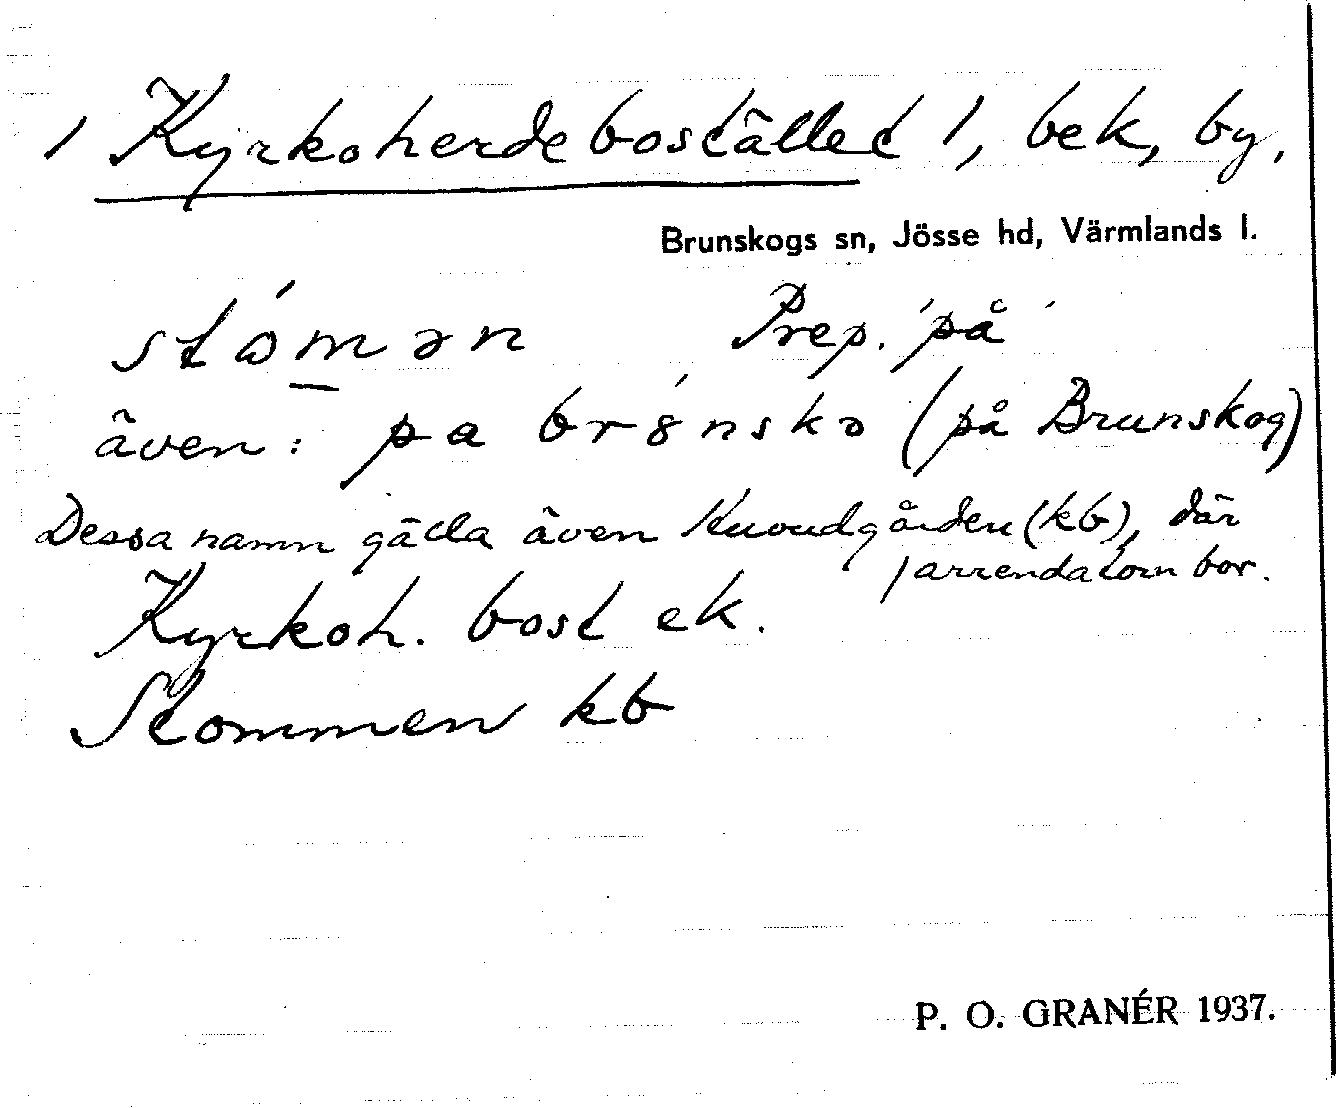 1 Kyrkoherdebostället 1, bek, by.
Brunskogs sn, Jösse hd, Värmlands l.
stòmən Prep. 'på'
även: pa brȣ́nskə (på Brunskog)
Dessa namn gälla även Huvudgården (kb), där
arrendatorn bor.
Kyrkoh. bost ek.
Stommen kb
P. O. GRANÉR 1937.